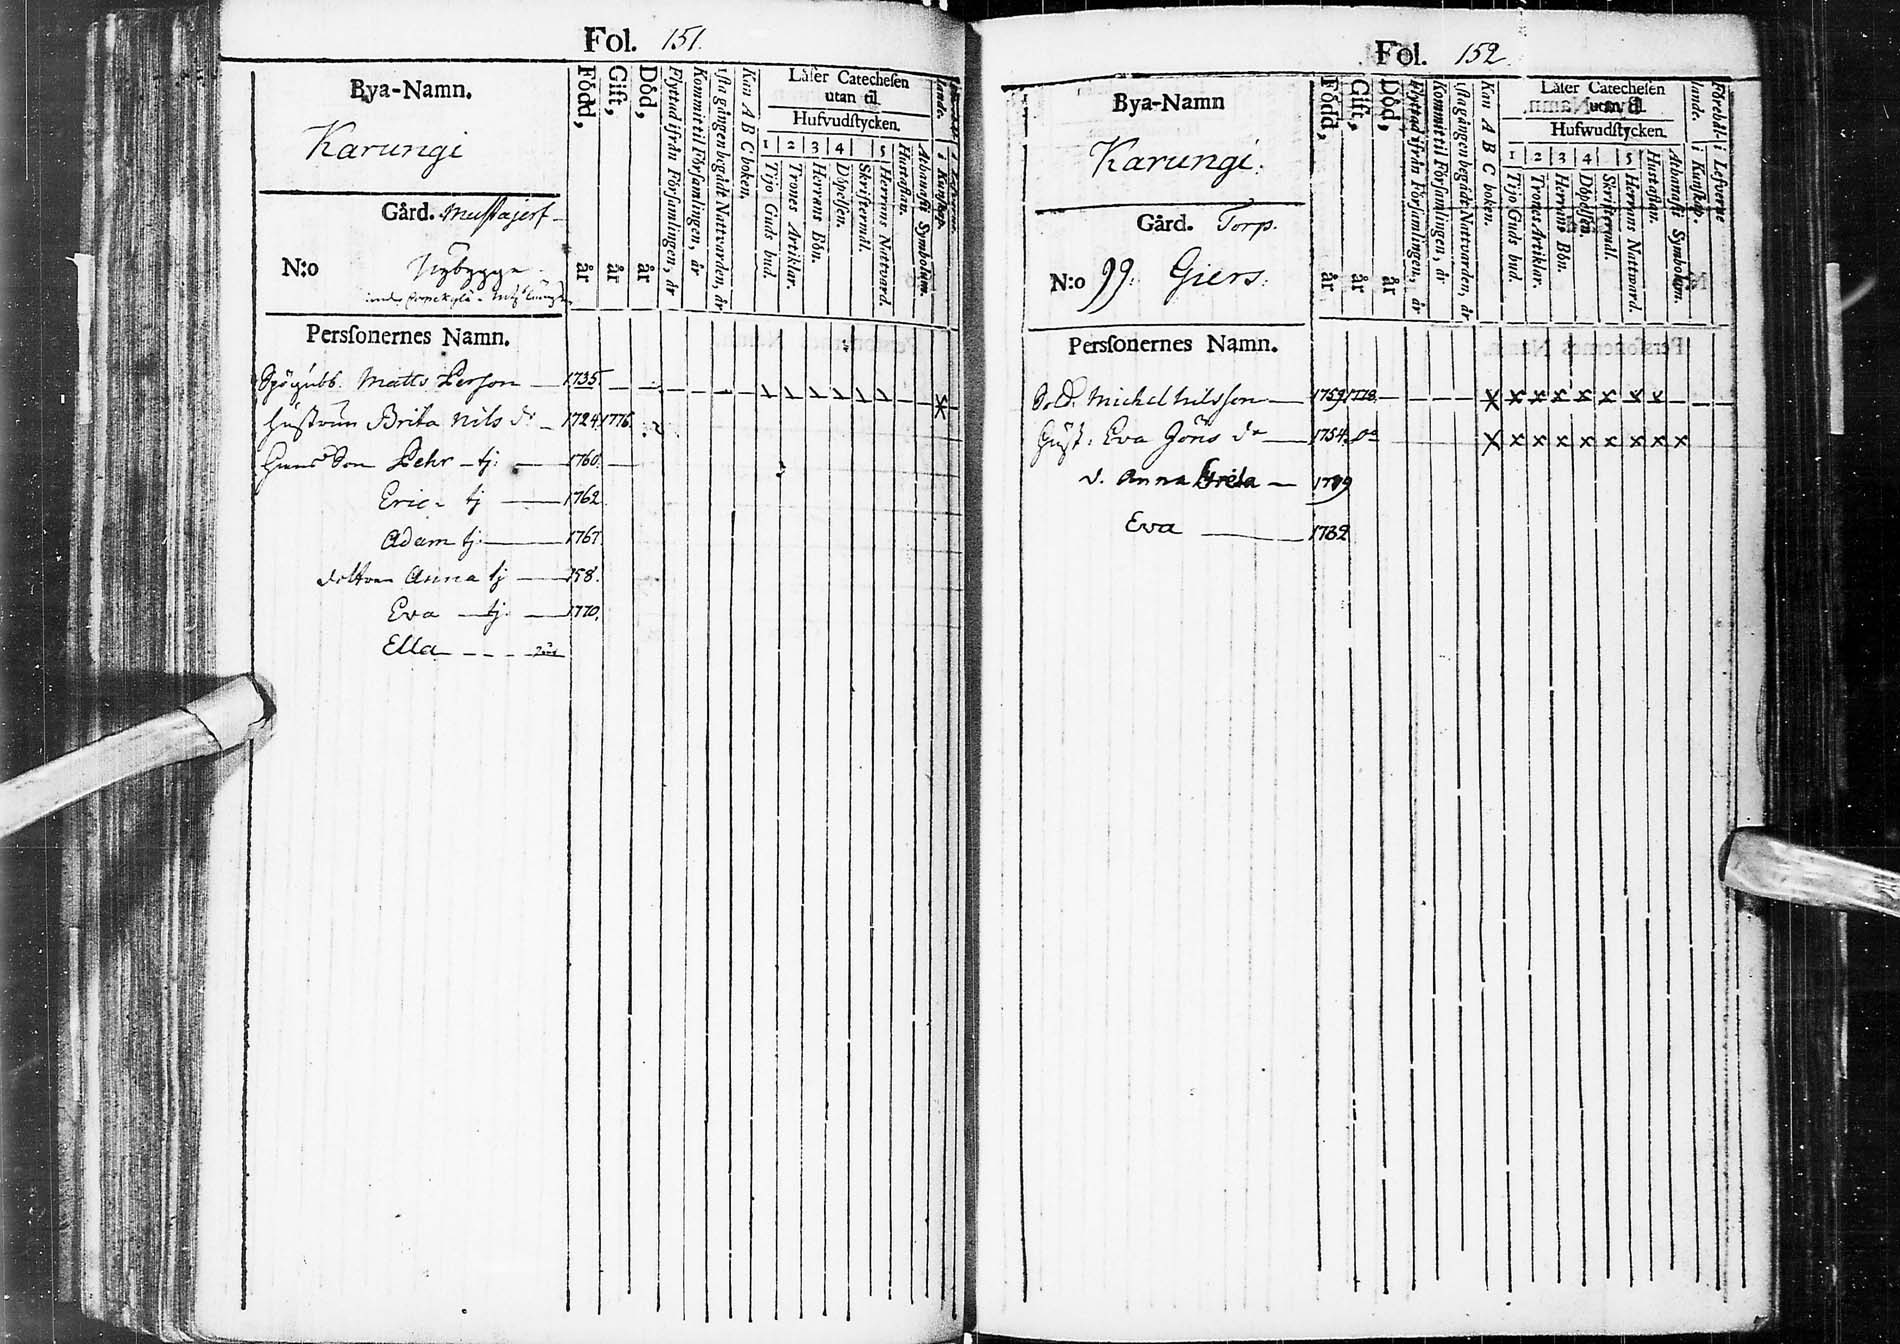 Fol. 151.
Bya-Namn.
Karungi
Gård. Mustajerf
N:o Nybygge
Född, år
Gift, år
Död, år
Flyttad ifrån Församlingen, år
Kommit til Församlingen, år
1sta gången begådt Nattvarden, år
Kan A B C boken.
Läser Catechesen
utan til.
Hufvudstycken.
1 2 3 4 5
Tijo Guds bud.
Trones Artiklar.
Herrans Bön.
Döpelsen.
Skriftermål.
Herrans Nattvard.
Hustaflan.
Athanasii Symbolum.
i Kunskap.
lande.
Personernes Namn.
Matts Person 1735.
Hustrun Brita Nils dr 1724. 1776.
Son Pehr tj: 1760.
Eric tj 1762
Adam tj: 1767
dottren Anna tj 158.
Eva tj: 1770.
Ella
Fol. 152
Bya-Namn
Karungi.
Gård. Torp.
N:o 99: Giers.
Född, år
Gift, år
Död, år
Flyttad ifrån Församlingen, år
Kommit til Församlingen, år
1sta gången begådt Nattvarden, år
Kan A B C boken.
Läser Catechesen
utan til.
Hufwudstycken.
1 2 3 4 5
Tijo Guds bud.
Trones Artiklar.
Herrans Bön.
Döpelsen
Skriftermål.
Herrans Nattvard.
Hustaflan.
Athanasii Symbolum.
lande. i Kunskap.
Förehål- i Lefverne
Personernes Namn.
Sold. Michel Nilsson 1759 1778. x x x x x x x x
Hust: Eva Jöns dr 1754. do x x x x x x x x x
d. Anna Greta 1779
Eva 1782